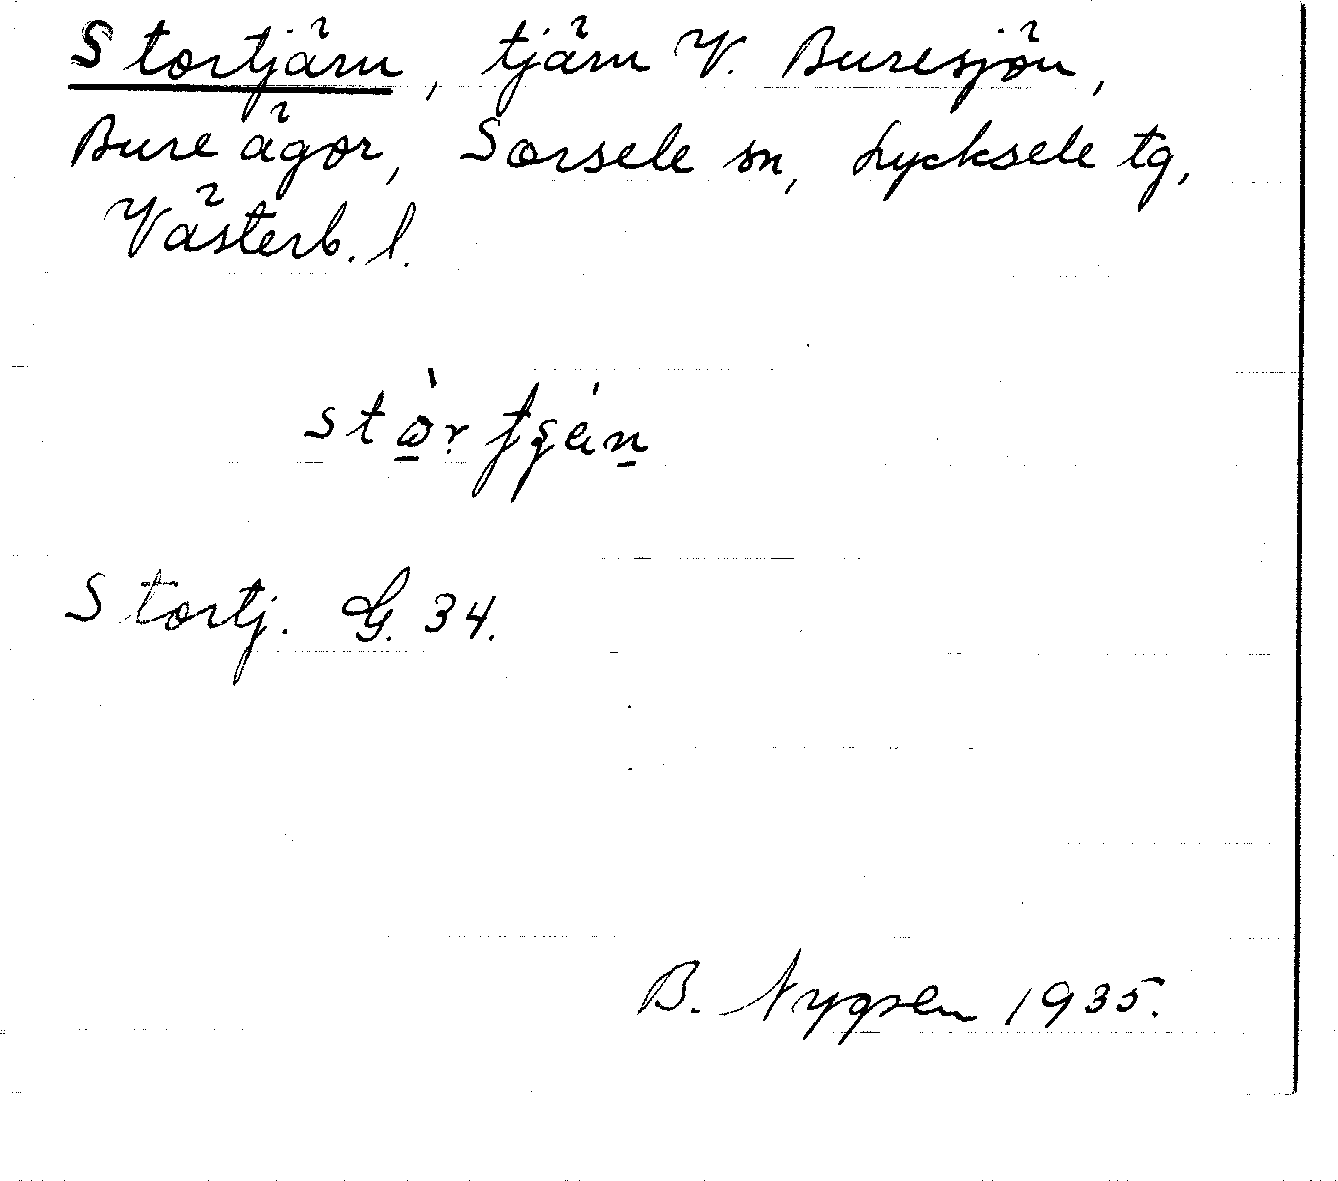 Stortjärn, tjärn V. Buresjön,
Bure ägor, Sorsele sn, Lycksele tg,
Västerb. l.
Stortj. G. 34.
B. Nygren 1935.